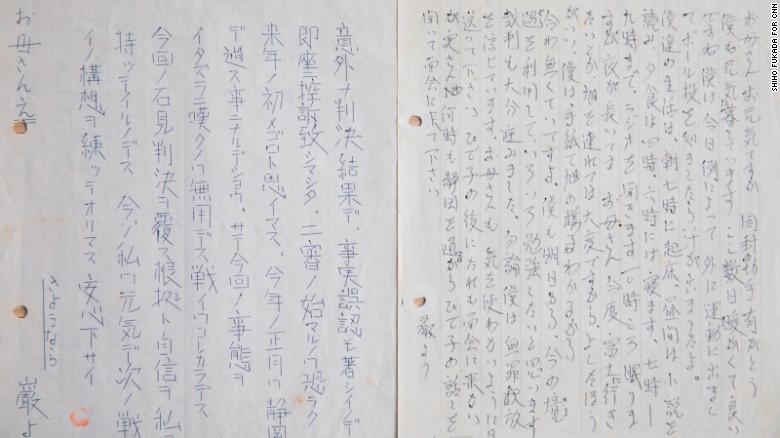 お母さんお元気ですか 同封切手有がとう
僕も元気で暮しています。ここ数日暖かくて良い
ですね 僕は今日例によって外に運動に出まし
てボール投を 汗がでましたよ。
僕達の生活は、朝七時に起床、昼間は小説を
読み、夕食は四時、六時には寝ます、七時ー
九時まで、ラジオを聞きます 一〇時ころ眠りま
すが夜が長いです お母さん今度、富士に行き
たいとか、旭を連れては大変ですから、よしたほう
がいい、僕は、手紙で旭の わかるから
会わ無くていいですよ、僕も明日から、今の境
遇を利用して、いろいろ勉強したいと思います
裁判も大分進みました、勿論僕は無罪釈放
を信じています。お母さんも気を使わないように
送って下さい。ひで子の後にだれも面会に来ない
が実さん 何時も静岡を通るからひで子の話しを
聞いて面会に来て下さい
巌より
意外ナ判決結果デ、事実誤認モ著シイノデ
即座ニ控訴致シマシタ、二審ノ始マルノワ恐ラク
来年ノ初メゴロト思イマス、今年ノ正月ワ静岡
デ過ス事ニナルデショウ、サテ今回ノ事態ヲ
イタズラニ嘆クノワ無用デス戦イワコレカラデス
今回ノ石見判決ヲ覆ス根拠ト自信ヲ私ワ
持ッテイルノデス、今ノ私ワ元気デ次ノ戦
イノ構想ヲ練ッテオリマス安心下サイ
さようなら
巌よ
お母さんえ
SHIHO FUKADA FOR CNN